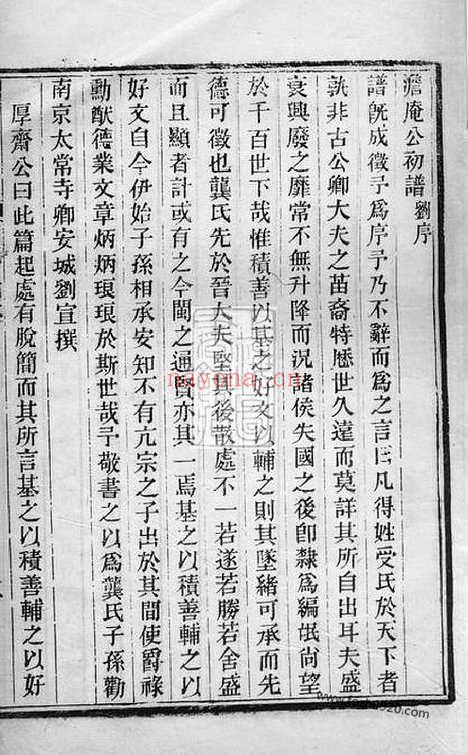 澹庵公初譜劉序
譜既成徵予爲序予乃不辭而爲之言曰凡得姓受氏於天下者
孰非古公卿大夫之苗裔特歷世久遠而莫詳其所自出耳夫盛
衰興廢之靡常不無升降而況諸侯失國之後卽隸爲編氓尚望
於千百世下哉惟積善以基之好文以輔之則其墜緒可承而先
德可徵也龔氏先於晉大夫堅其後散處不一若遂若勝若舍盛
而且顯者計或有之今閩之通賢亦其一焉基之以積善輔之以
好文自今伊始子孫相承安知不有亢宗之子出於其間使爵祿
勳猷德業文章炳炳琅琅於斯世哉予敬書之以爲龔氏子孫勸
南京太常寺卿安城劉宣撰
厚齋公曰此篇起處有脫簡而其所言基之以積善輔之以好
nayona.cn